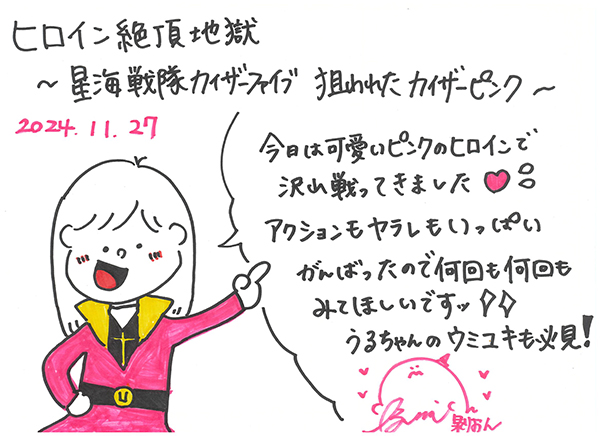 ヒロイン絶頂地獄
～星海戦隊カイザーファイブ 狙われたカイザーピンク～
2024.11.27
今日は可愛いピンクのヒロインで
沢山戦ってきました
アクションもヤラレもいっぱい
がんばったので何回も何回も
みてほしいですッ
うるちゃんのウミユキも必見!
U